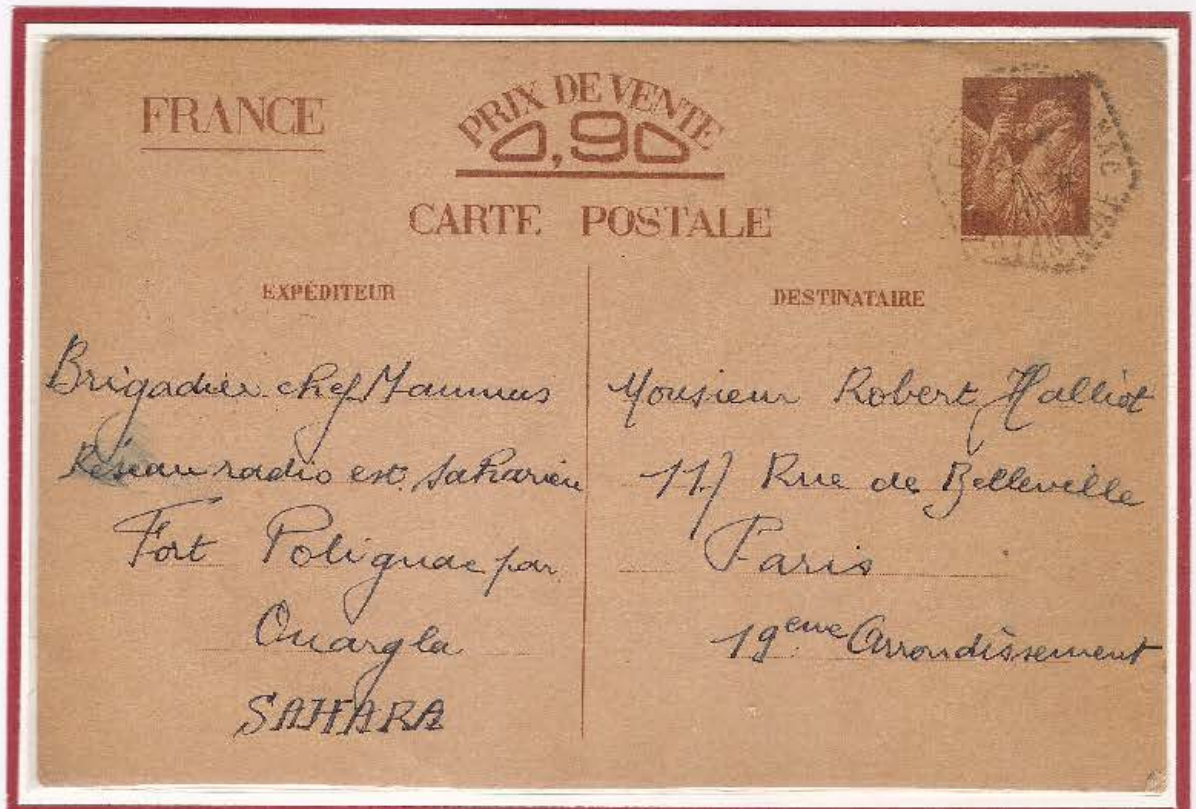 FRANCE
PRIX DE VENTE
0,90
CARTE POSTALE
EXPÉDITEUR
Brigadier chef Maumus
Réseau radio est Saharien
Fort Polignac par
Ouargla
SAHARA
DESTINATAIRE
Monsieur Robert Halliot
117 Rue de Belleville
Paris
19eme Arrondissement